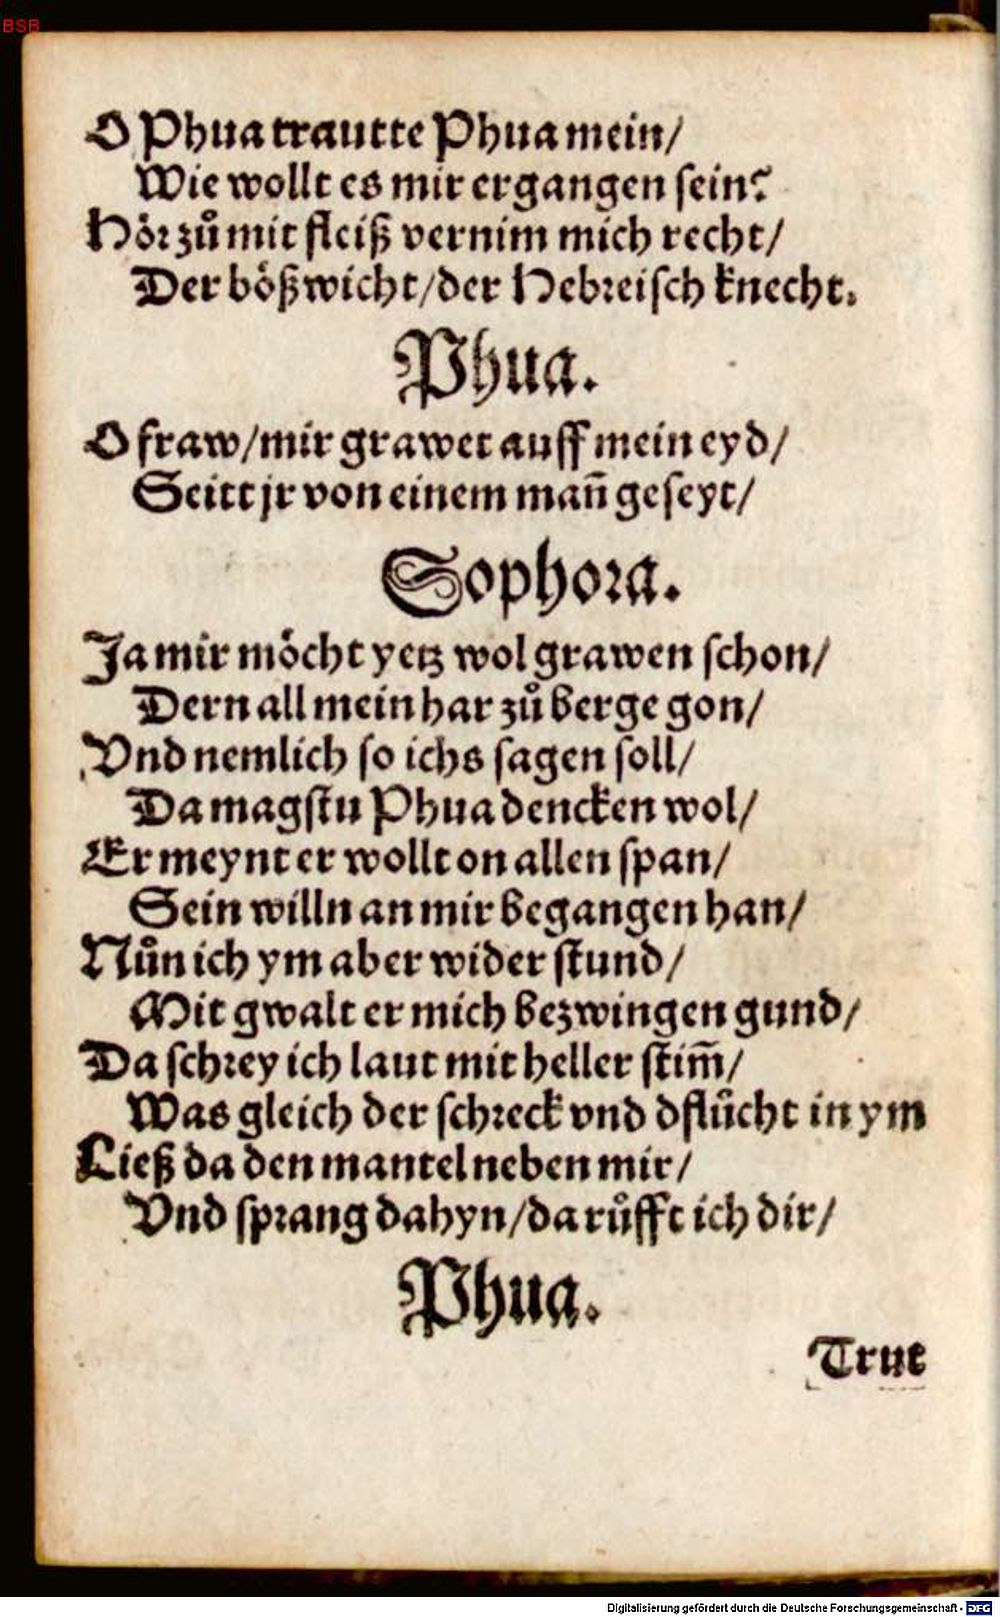 BSB
O Phua trautte Phua mein/
Wie wollt es mir ergangen sein?
Hoͤr zuͦ mit fleiß vernim mich recht/
Der boͤßwicht/der Hebreisch knecht.
Phua.
O fraw/mir grawet auff mein eyd/
Seitt jr von einem mañ geseyt/
Sophora.
Ja mir moͤcht yetz wol grawen schon/
Dern all mein har zuͦ berge gon/
Vnd nemlich so ichs sagen soll/
Da magstu Phua dencken wol/
Er meynt er wollt on allen span/
Sein willn an mir begangen han/
Nuͦn ich ym aber wider stund/
Mit gwalt er mich bezwingen gund/
Da schrey ich laut mit heller stim̃/
Was gleich der schreck vnd dfluͤcht in ym
Ließ da den mantel neben mir/
Vnd sprang dahyn/da ruͦfft ich dir/
Phua.
Trut
Digitalisierung gefördert durch die Deutsche Forschungsgemeinschaft - DFG